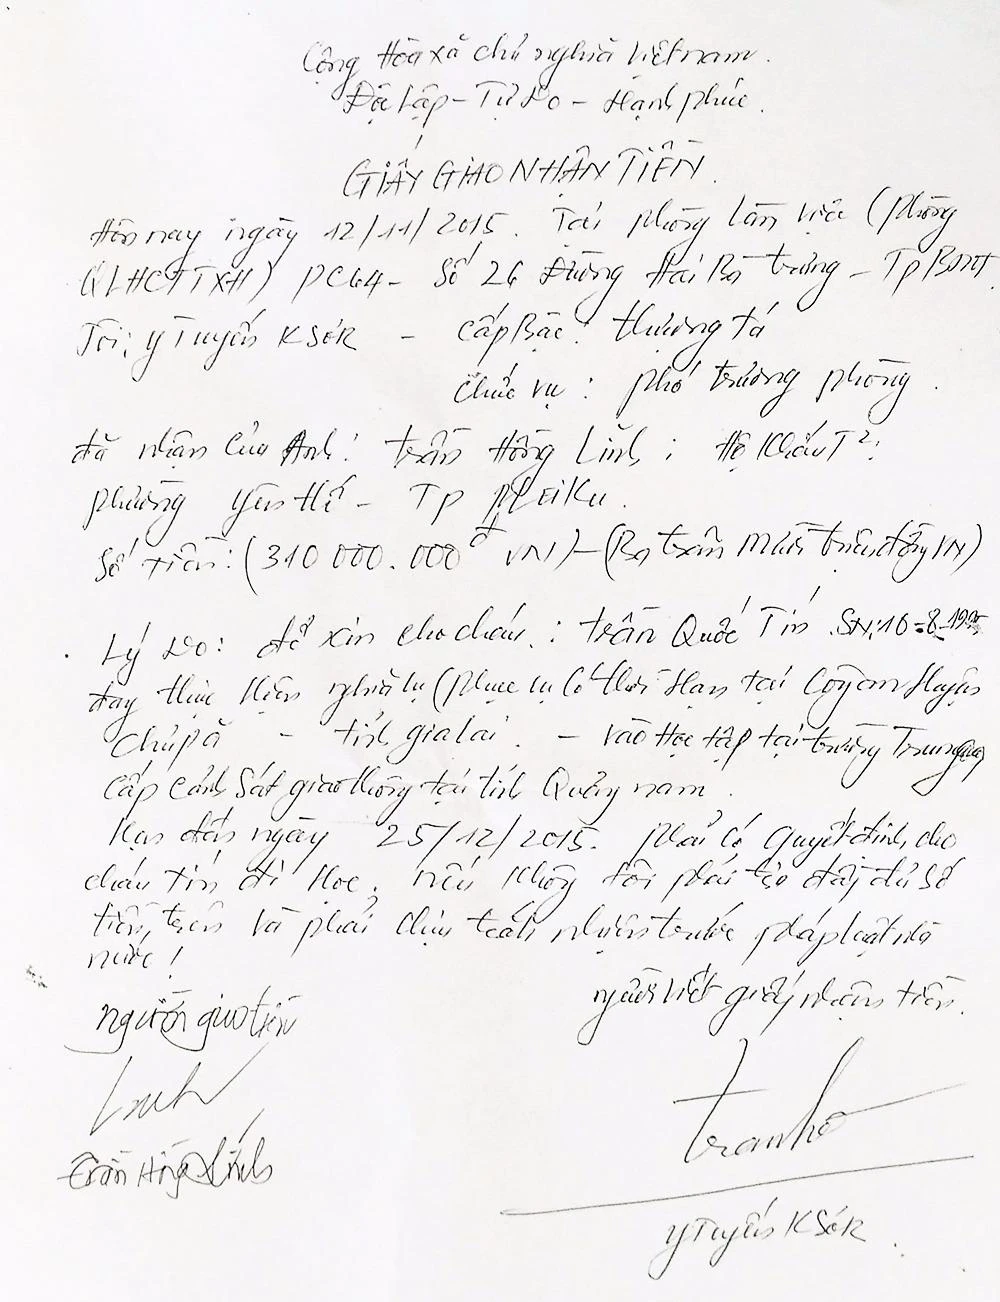 Cộng Hòa xã chủ nghĩa Việt nam.
Độc Lập - Tự Do - Hạnh phúc.
GIẤY GIAO NHẬN TIỀN.
Hôm nay ngày 12/11/2015. Tại phòng làm việc (phòng
QLHCTTXH) PC64 - Số 26 Đường Hai Bà trưng - Tp BMT.
Tôi: y Tuyến KSơR - Cấp Bậc: thượng tá
Chức vụ: phó trưởng phòng.
đã nhận của Anh: trần Hồng Lĩnh; Hộ Khẩu T²:
phường yên thế - Tp pLeiKu.
Số tiền: (310 000.000đ VN) - (Ba trăm Mười triệu đồng VN)
Lý Do: để xin cho cháu: trần Quốc Tín SN: 10-8-1995
đang thực hiện nghĩa vụ (phục vụ có thời Hạn tại Công an Huyện
chưpă - tỉnh gia lai. - vào Học tập tại trường Trung
cấp cảnh Sát giao thông tại tỉnh Quảng nam.
Hạn đến ngày 25/12/2015. phải có quyết định cho
cháu tín đi Học. nếu không tôi phải trả đầy đủ số
tiền trên và phải chịu trách nhiệm trước pháp luật nhà
nước!
người giao tiền
người viết giấy nhận tiền.
Trần Hồng Lĩnh
y Tuyến KSơR.